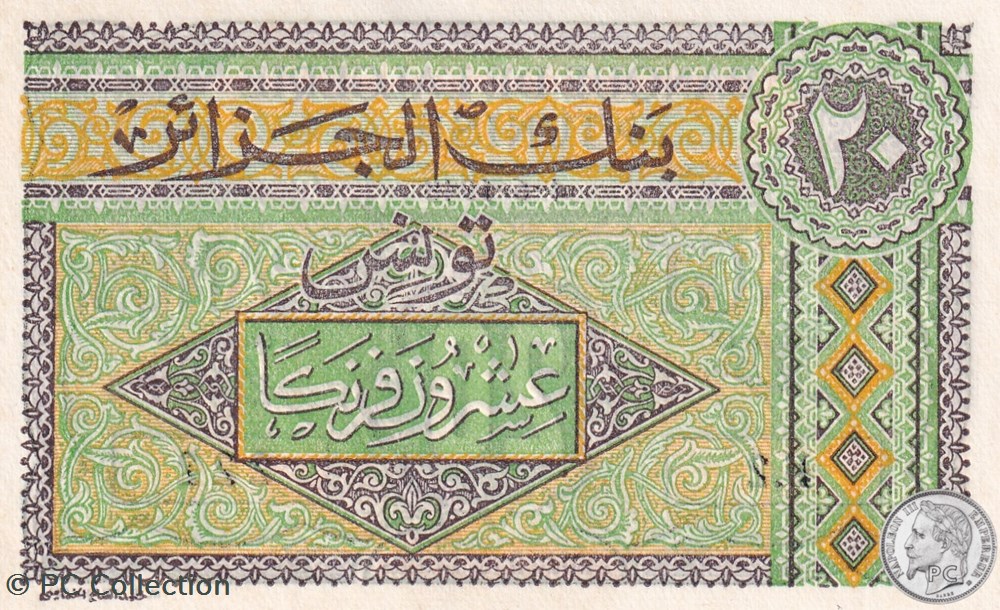 بنك الجزائر
٢٠
تونس
عِشْرُونَ فَرَنْكًا
© PC Collection
NAPOLEON III EMPEREUR
PC